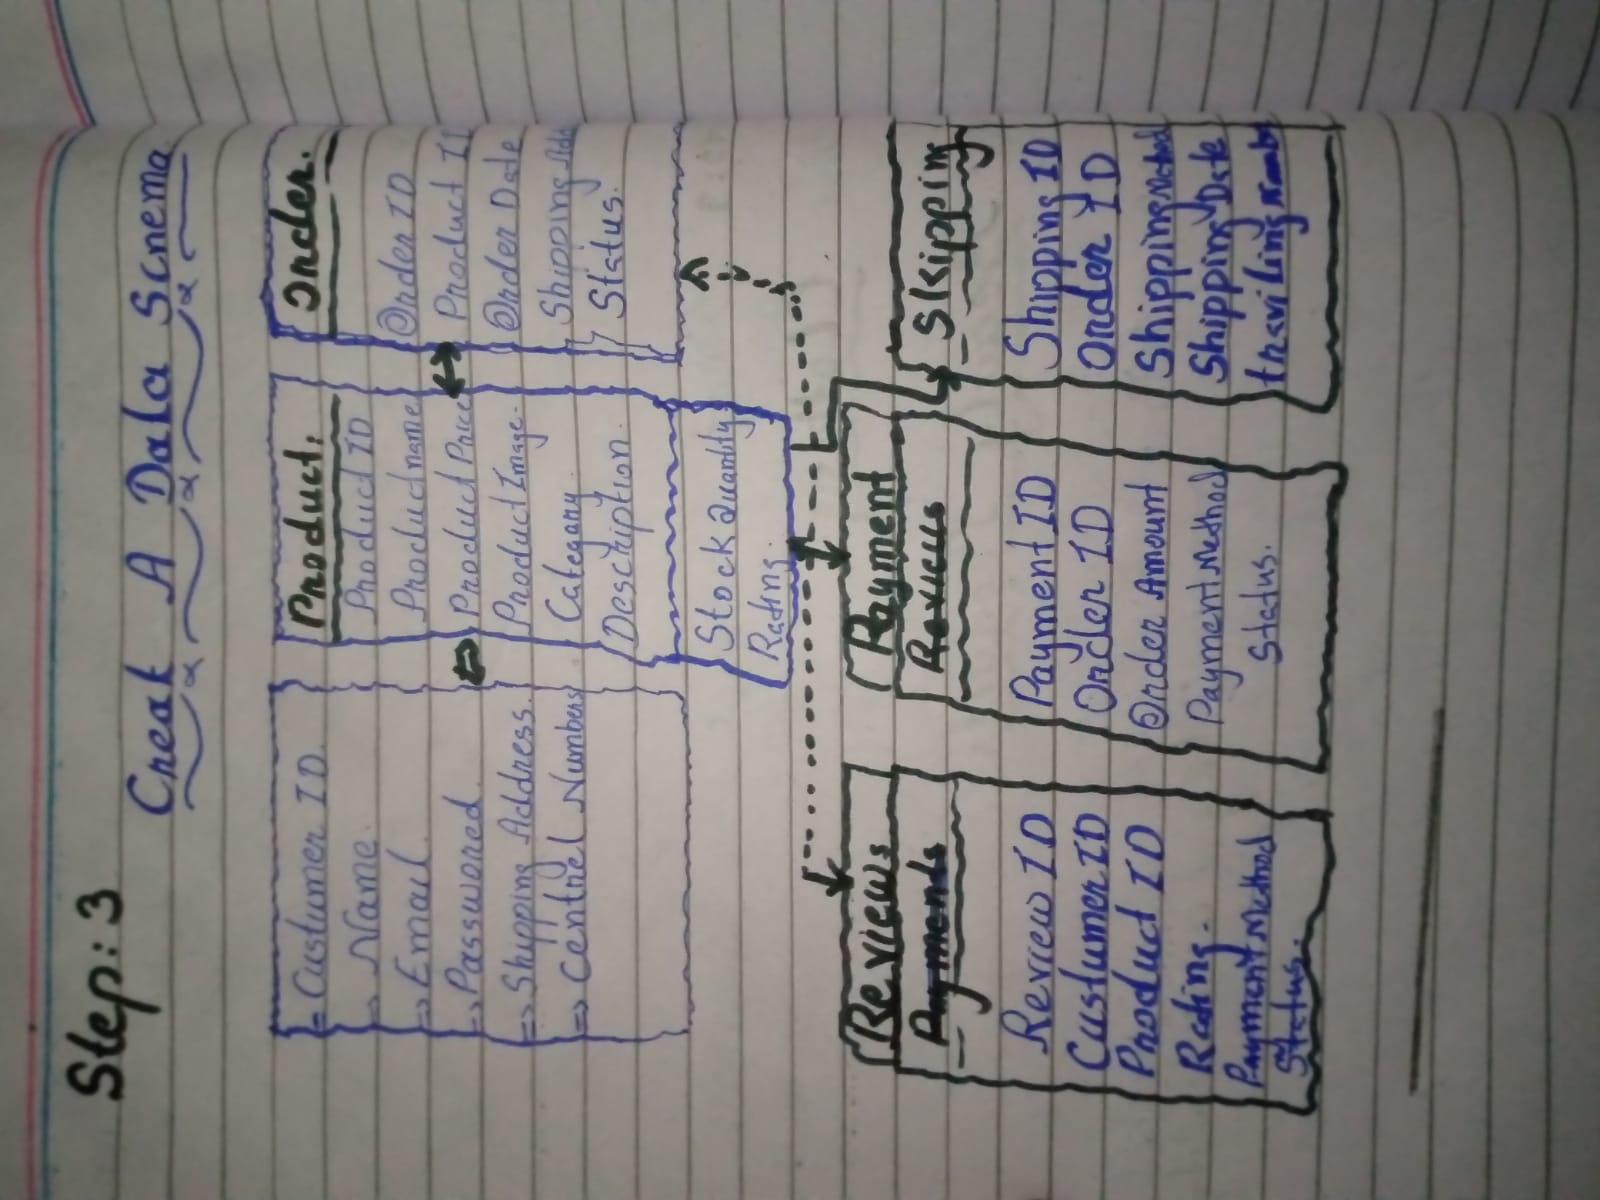 Step: 3
Creat A Data Scnema
=> Custumer ID.
=> Name.
=> Email
=> Passwored.
=> Shipping Address.
=> Centnel Numbers
Product:
Product ID
Product name
Product Price
Product Image.
Categary
Description.
Stock Quantity
Rating.
Order.
Order ID
Product ID
Order Date
Shipping Add
Status.
Reviews
Payments
Review ID
Custumer ID
Product ID
Rating.
Payment Method
Status.
Payment
Payment ID
Order ID
Order Amount
Payment Method
Status.
Skipping
Shipping ID
Order ID
Shipping Method
Shipping Date